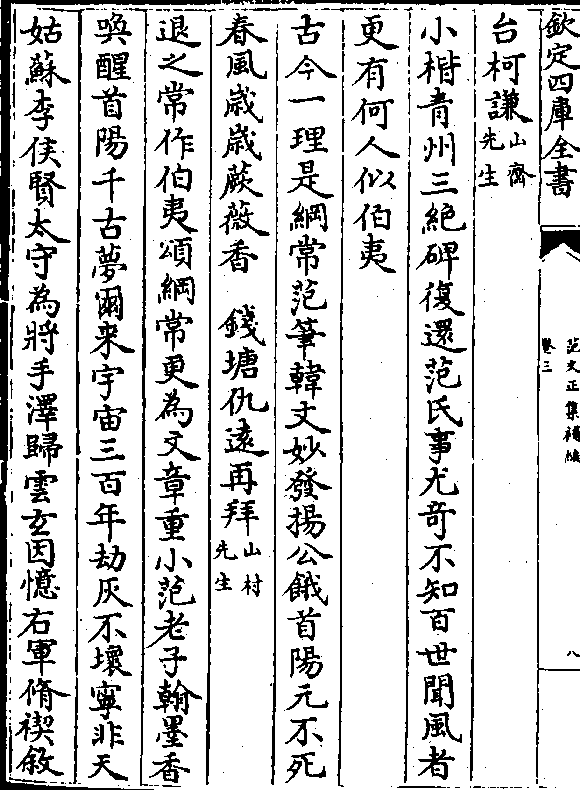 欽定四庫全書
范文正集補編
卷三
八
台柯謙山齋先生
小楷青州三絶碑復還范氏事尤奇不知百世聞風者
更有何人似伯夷
古今一理是綱常范筆韓文妙發揚公餓首陽元不死
春風歳歳蕨薇香　錢塘仇遠再拜山村先生
退之常作伯夷頌綱常更為文章重小范老子翰墨香
喚醒首陽千古夢爾来宇宙三百年劫灰不壞寧非天
姑蘇李侯賢太守為將手澤歸雲玄因憶右軍脩禊叙